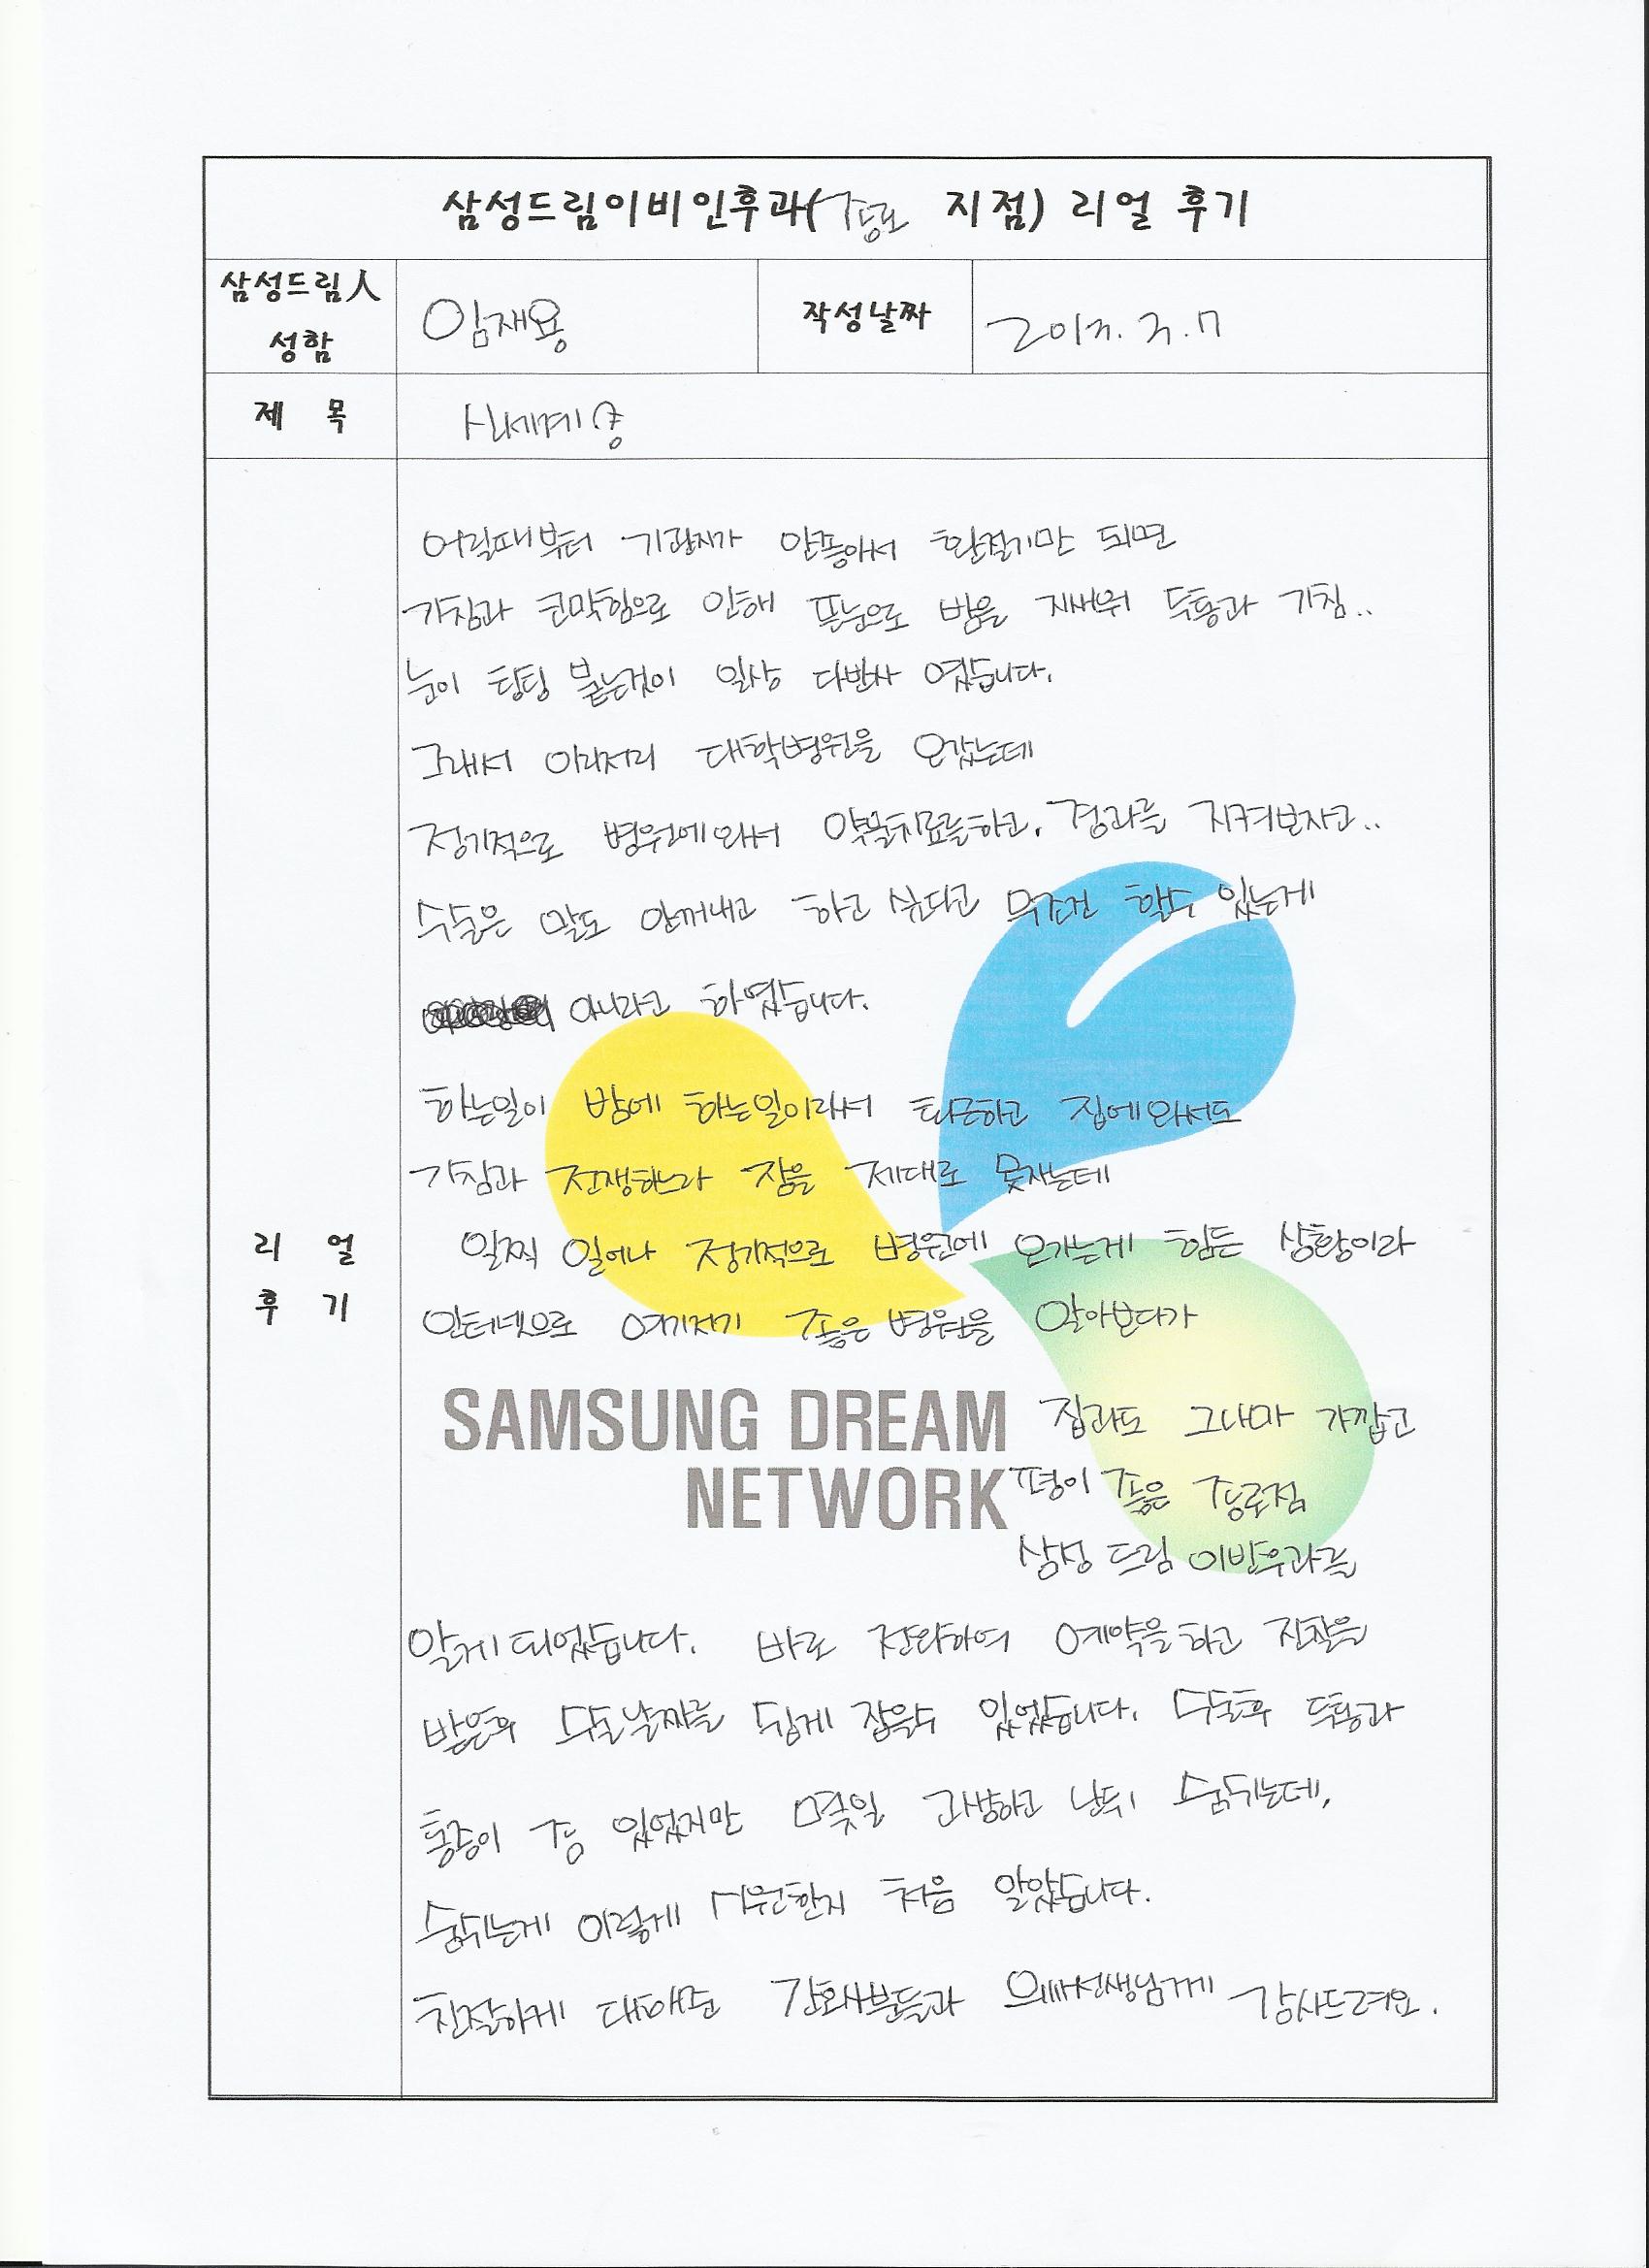 삼성드림이비인후과(종로 지점) 리얼 후기
삼성드림人 성함
임재용
작성날짜
제 목
신세계 숨
어릴때부터 기관지가 안좋아서 환절기만 되면
기침과 코막힘으로 인해 뜬눈으로 밤을 지새워 두통과 기침..
눈이 팅팅 붙는것이 일상 다반사 였습니다.
그래서 이리저리 대학병원을 오갔는데
정기적으로 병원에와서 약물치료를하고, 경과를 지켜보자고..
수술은 말도 안꺼내고 하고 싶다고 무조건 할수 있는게
아니라고 하였습니다.
하는일이 밤에 하는일이라서 퇴근하고 집에와서도
기침과 전쟁하느라 잠을 제대로 못자는데
일찍 일어나 정기적으로 병원에 오가는게 힘든 상황이라
인터넷으로 여기저기 좋은 병원을 알아보다가
집과도 그나마 가깝고
평이 좋은 종로점
삼성 드림 이빈후과를
SAMSUNG DREAM
NETWORK
알게되었습니다. 바로 전화하여 예약을하고 진찰을
받은후 수술날짜를 쉽게 잡을수 있었습니다. 수술후 두통과
통증이 좀 있었지만 몇일 고생하고 난뒤 숨쉬는데,
숨쉬는게 이렇게 시원한지 처음 알았습니다.
친절하게 대해준 간호사분들과 의사선생님께 감사드려요.
리 얼
후 기